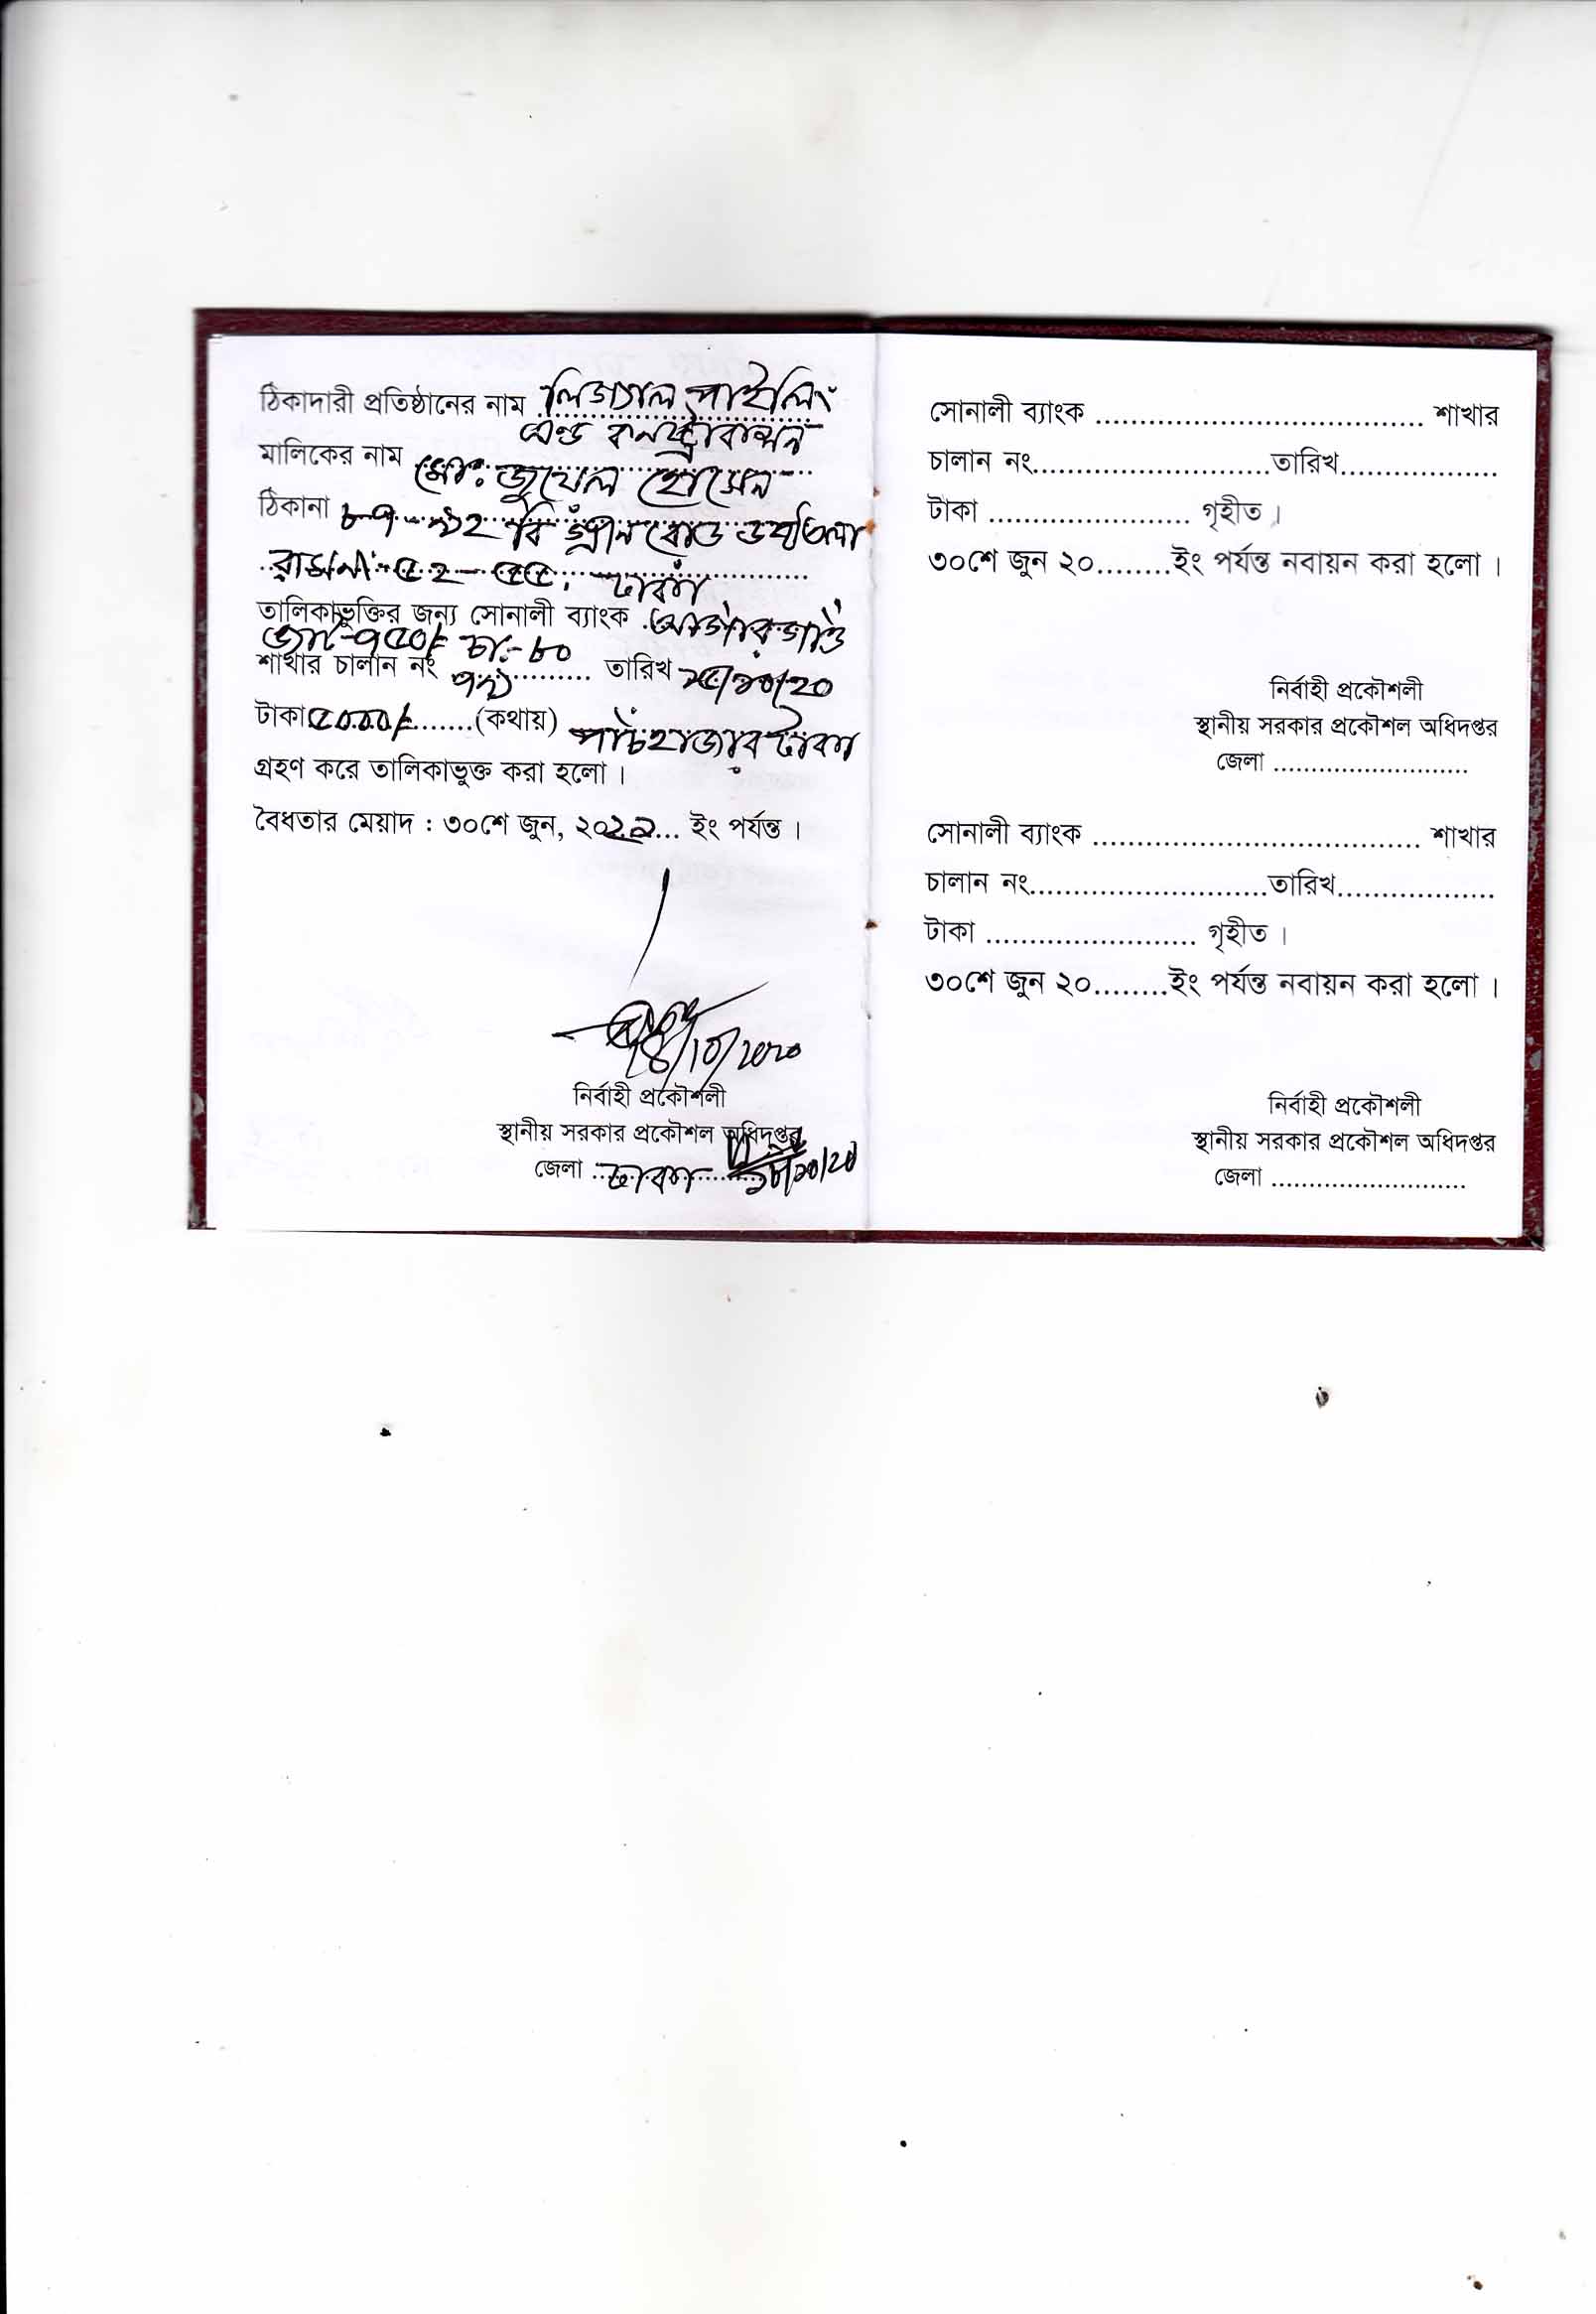 ঠিকাদারী প্রতিষ্ঠানের নাম লিগ্যাল পাইলিং
এন্ড কনস্ট্রাকশন
মালিকের নাম মোঃ জুয়েল হোসেন
ঠিকানা ৮৭-৯২ বি গ্রীন রোড
৫২-৫৫, ঢাকা
তালিকাভুক্তির জন্য সোনালী ব্যাংক আগারগাঁও
৭৫০/- চা:-৮০
শাখার চালান নং ৭৯ তারিখ ১৫/১০/২০
টাকা ৫০০০/- (কথায়) পাঁচহাজার টাকা
গ্রহণ করে তালিকাভুক্ত করা হলো ।
বৈধতার মেয়াদ : ৩০শে জুন, ২০২১... ইং পর্যন্ত ।
18/10/2020
নির্বাহী প্রকৌশলী
স্থানীয় সরকার প্রকৌশল অধিদপ্তর
জেলা ঢাকা ১৮/১০/২০
সোনালী ব্যাংক ..................................... শাখার
চালান নং...........................তারিখ..................
টাকা ....................... গৃহীত ।
৩০শে জুন ২০........ইং পর্যন্ত নবায়ন করা হলো ।
নির্বাহী প্রকৌশলী
স্থানীয় সরকার প্রকৌশল অধিদপ্তর
জেলা ..........................
সোনালী ব্যাংক ..................................... শাখার
চালান নং...........................তারিখ..................
টাকা ........................ গৃহীত ।
৩০শে জুন ২০........ইং পর্যন্ত নবায়ন করা হলো ।
নির্বাহী প্রকৌশলী
স্থানীয় সরকার প্রকৌশল অধিদপ্তর
জেলা ..........................